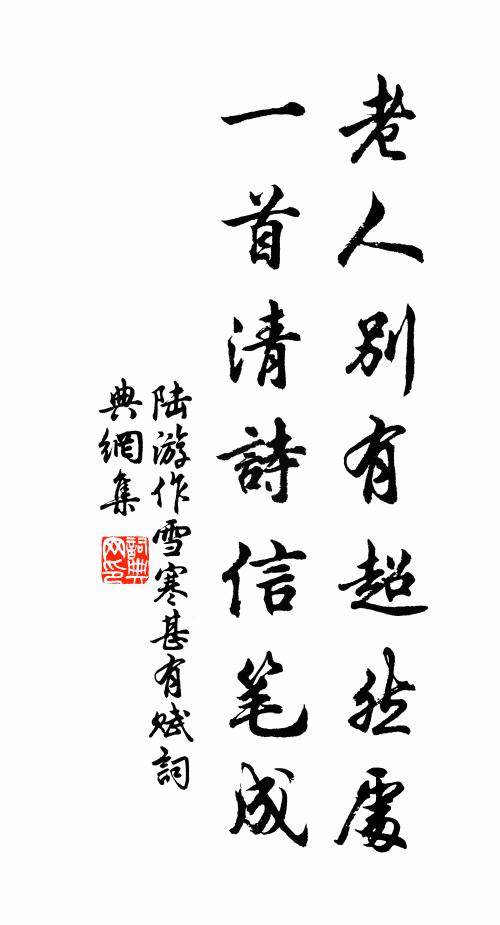 老人別有超然處
一首清詩信笔成
陆游作雪寒甚有赋詞
典網集
詞典网印